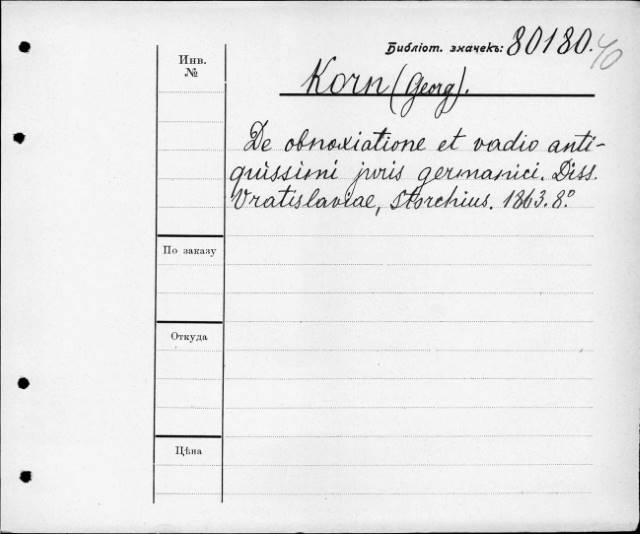 Библіот. значекъ: 80180. 40
Инв. №
Korn (Georg).
De obnoxiatione et vadio anti-
quissimi juris germanici. Diss.
Vratislaviae, Storchius. 1863. 8.º
По заказу
Откуда
Цѣна